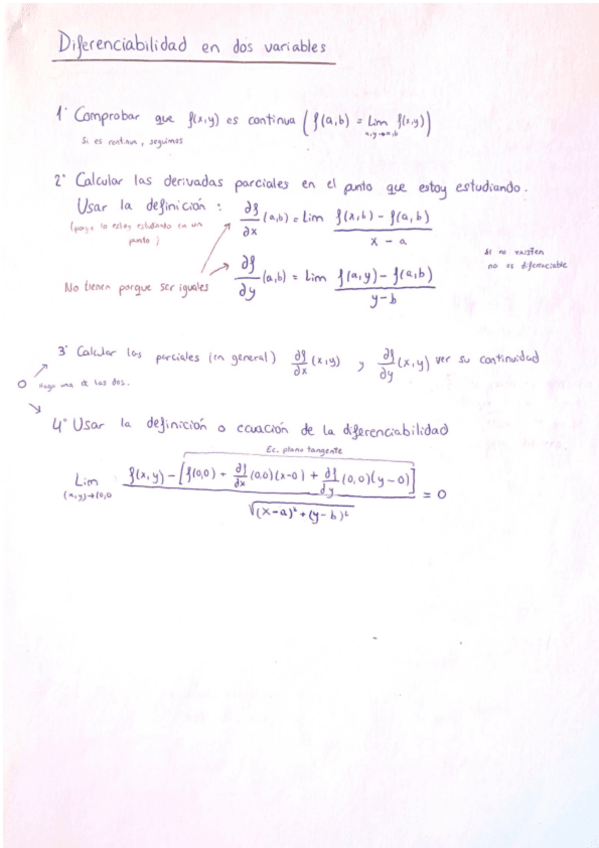 Diferenciabilidad en dos variables
1° Comprobar que f(x,y) es continua (f(a,b) = Lim f(x,y))
x,y→a,b
Si es continua, seguimos
2° Calcular las derivadas parciales en el punto que estoy estudiando.
Usar la definición : ∂f/∂x (a,b) = Lim f(x,b) - f(a,b) / x - a
(porqe lo estoy estudiando en un punto)
Si no existen
no es diferenciable
No tienen porque ser iguales
∂f/∂y (a,b) = Lim f(a,y) - f(a,b) / y-b
3° Calcular las parciales (en general) ∂f/∂x (x,y) , ∂f/∂y (x,y) ver su continuidad
O Hago una de las dos.
4° Usar la definición o ecuación de la diferenciabilidad
Ec. plano tangente
Lim f(x,y) - [f(0,0) + ∂f/∂x (0,0)(x-0) + ∂f/∂y (0,0)(y-0)] / √(x-a)² + (y-b)² = 0
(x,y)→(0,0